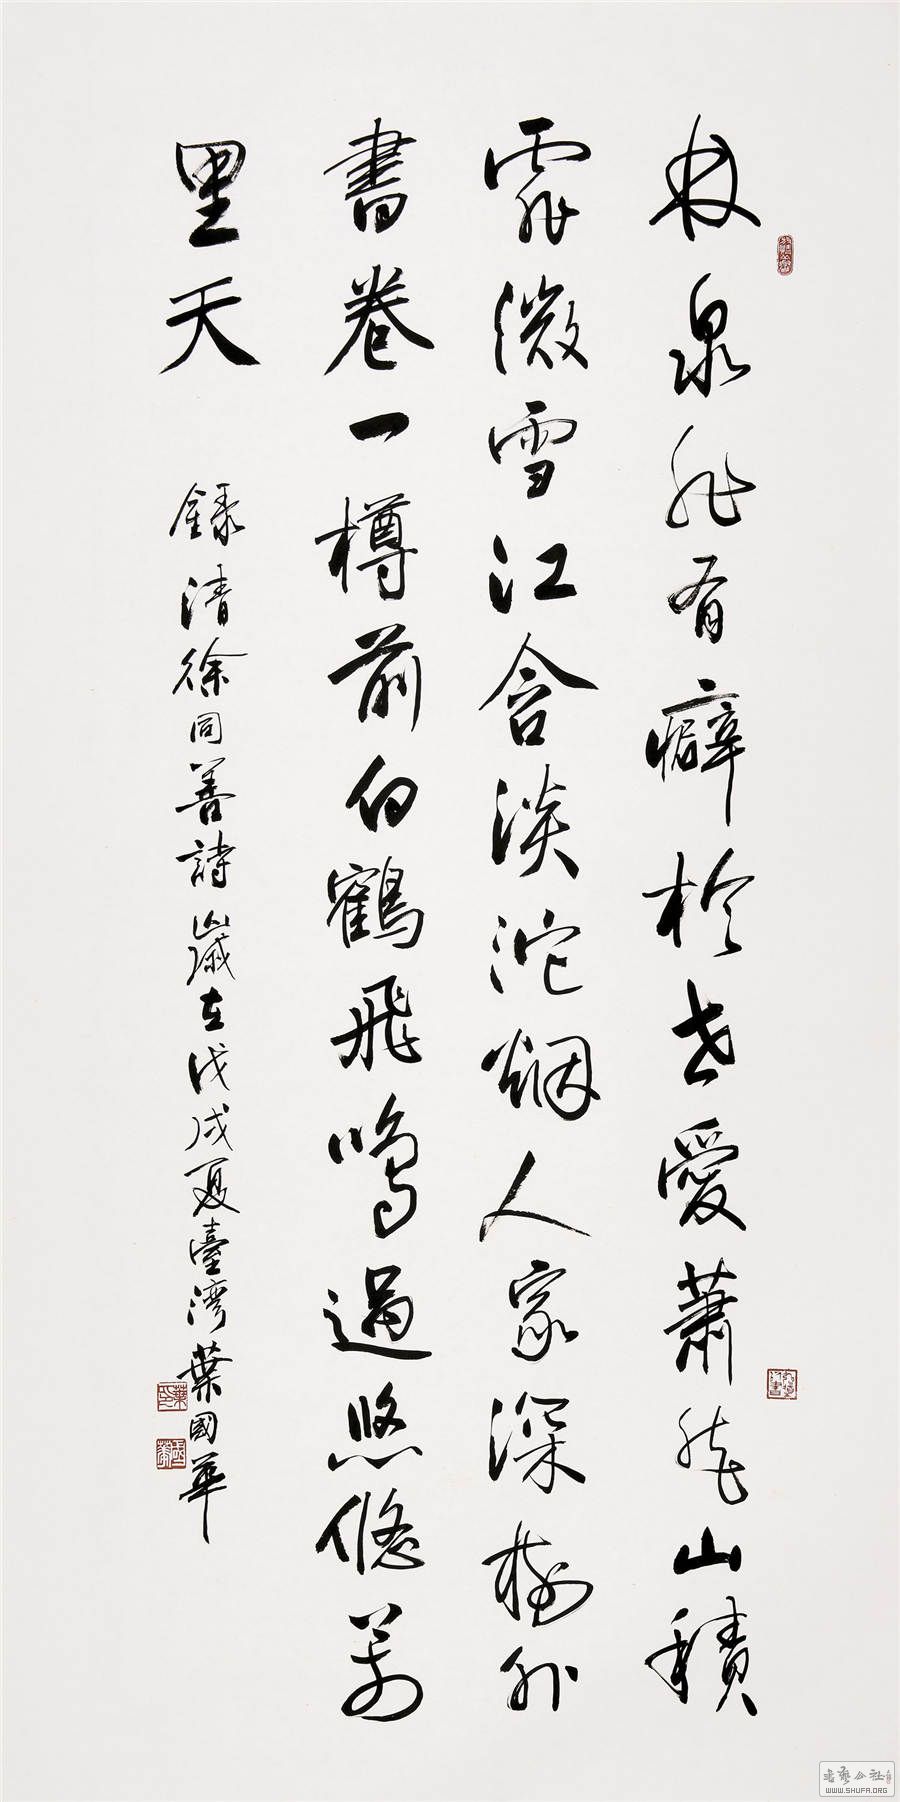 林泉非有癖於世愛蕭然山積
霏微雪江含淡沱烟人家深樹外
書卷一樽前白鶴飛鳴過悠悠萬
里天 錄清徐同善詩 歲在戊戌夏臺灣葉國華
WWW.SHUFA.ORG